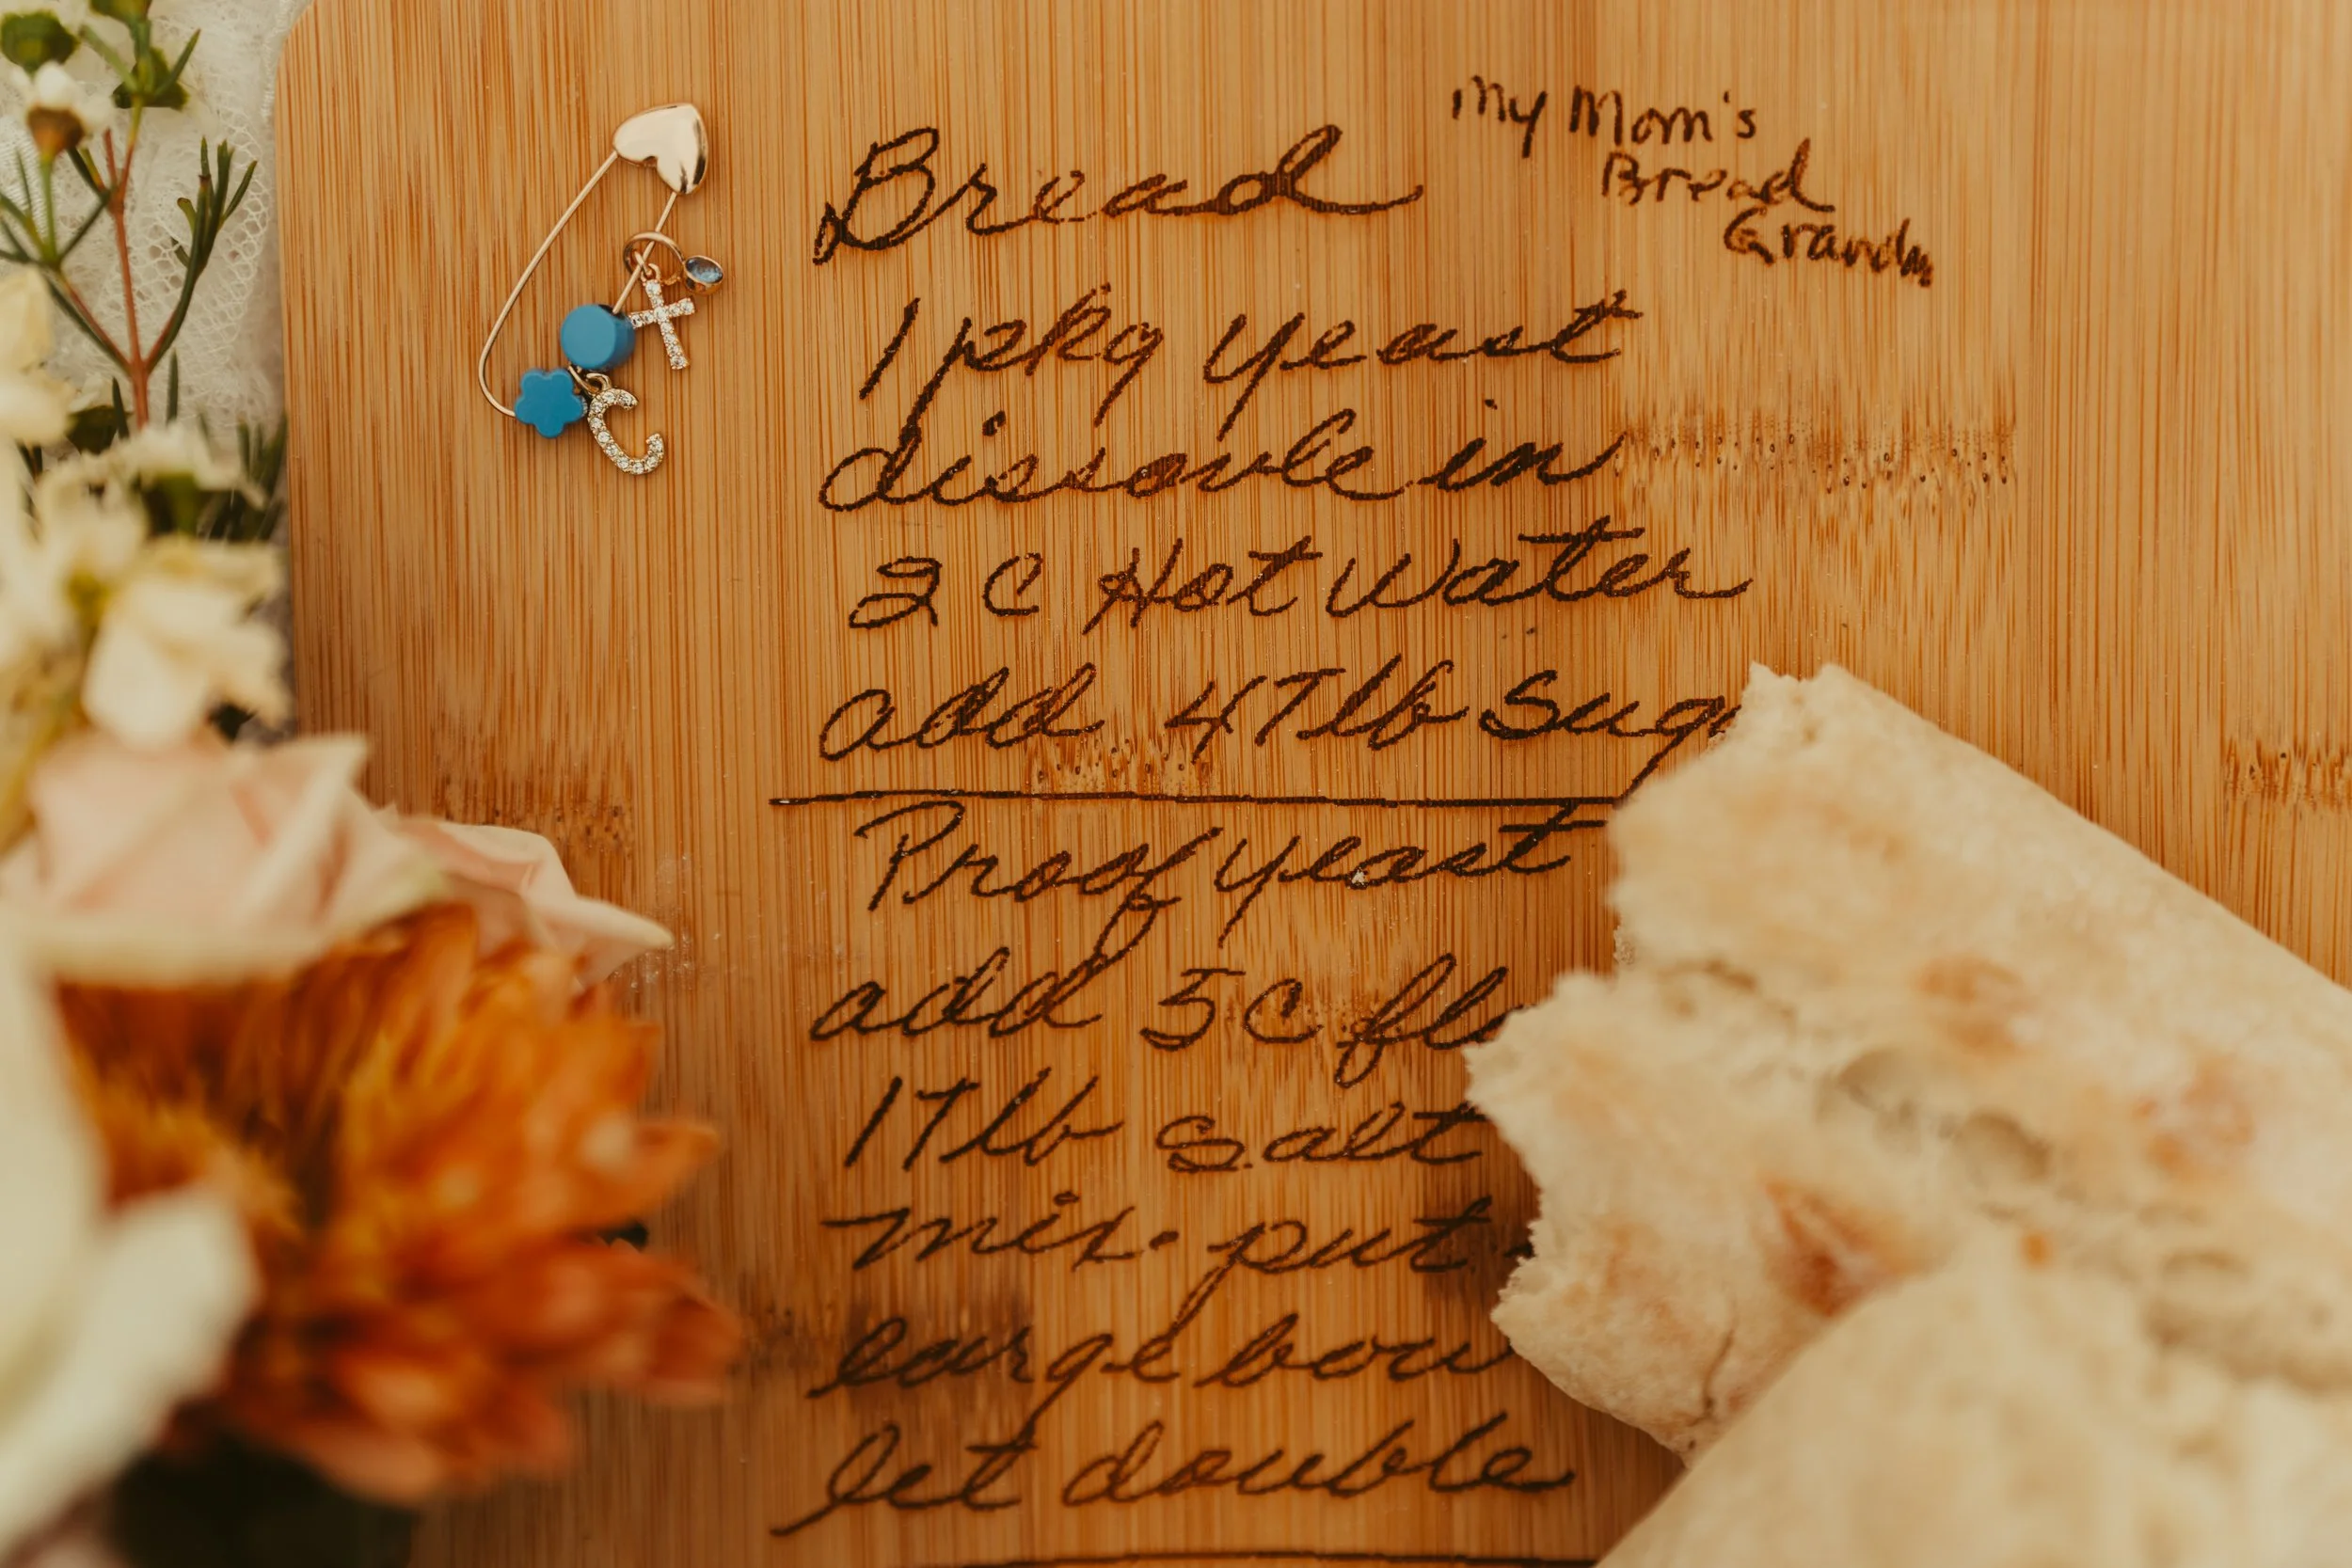 My Mom's
Bread
Grandm
Bread
1 pkg yeast
dissovle in
2 C Hot Water
add 4 Tlb Sug
Proof yeast
add 5 C fl
1 Tlb salt
mix. put
large bow
let double
C